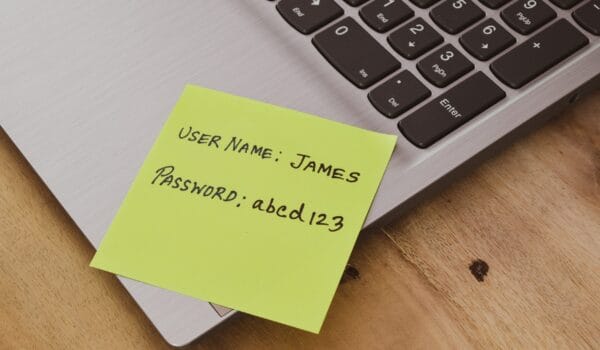 0
Ins
1
End
2
3
PgDn
.
Del
5
6
9
PgUp
+
Enter
USER NAME: JAMES
PASSWORD: abcd123